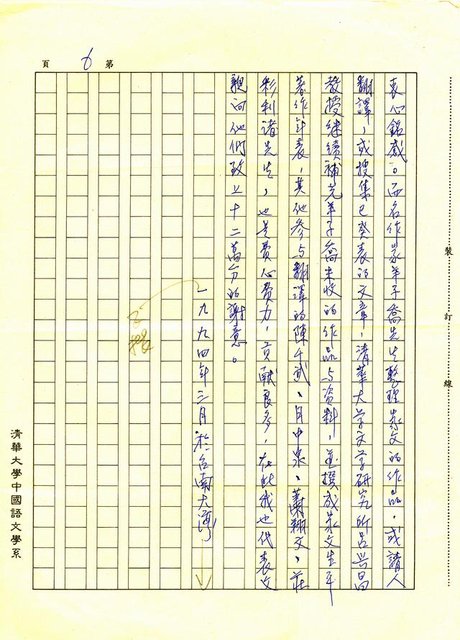 衷心銘感。而名作家羊子喬先生整理家父的作品,或請人
翻譯,或搜集已發表的文章,清華大学文学研究所呂兴昌
教授継續補充羊子喬未收的作品与資料,並撰成家父生平
著作年表,其他參与翻譯的陳千武、月中泉、蕭翔文、莊
諸先生,也是費心費力,貢献良多,在此我也代表父
親向他們致上十二萬分的謝意。
一九九四年三月於台南大灣
第6頁
裝訂線
清華大學中國語文學系